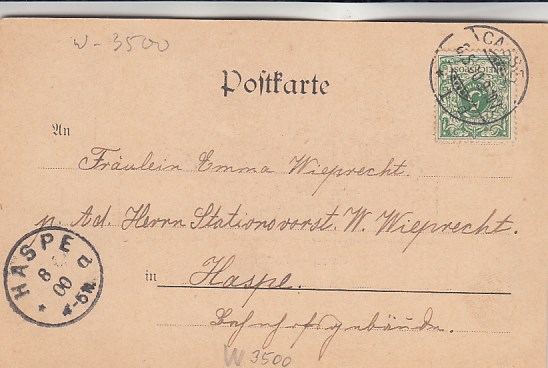 W-3500
CASSEL
Postkarte
An
Fräulein Emma Wieprecht.
p. Ad. Herrn Stationsvorst. W. Wieprecht.
HASPE
8
00
4-5N.
a
in Haspe.
Bahnhofsgebäude.
W 3500